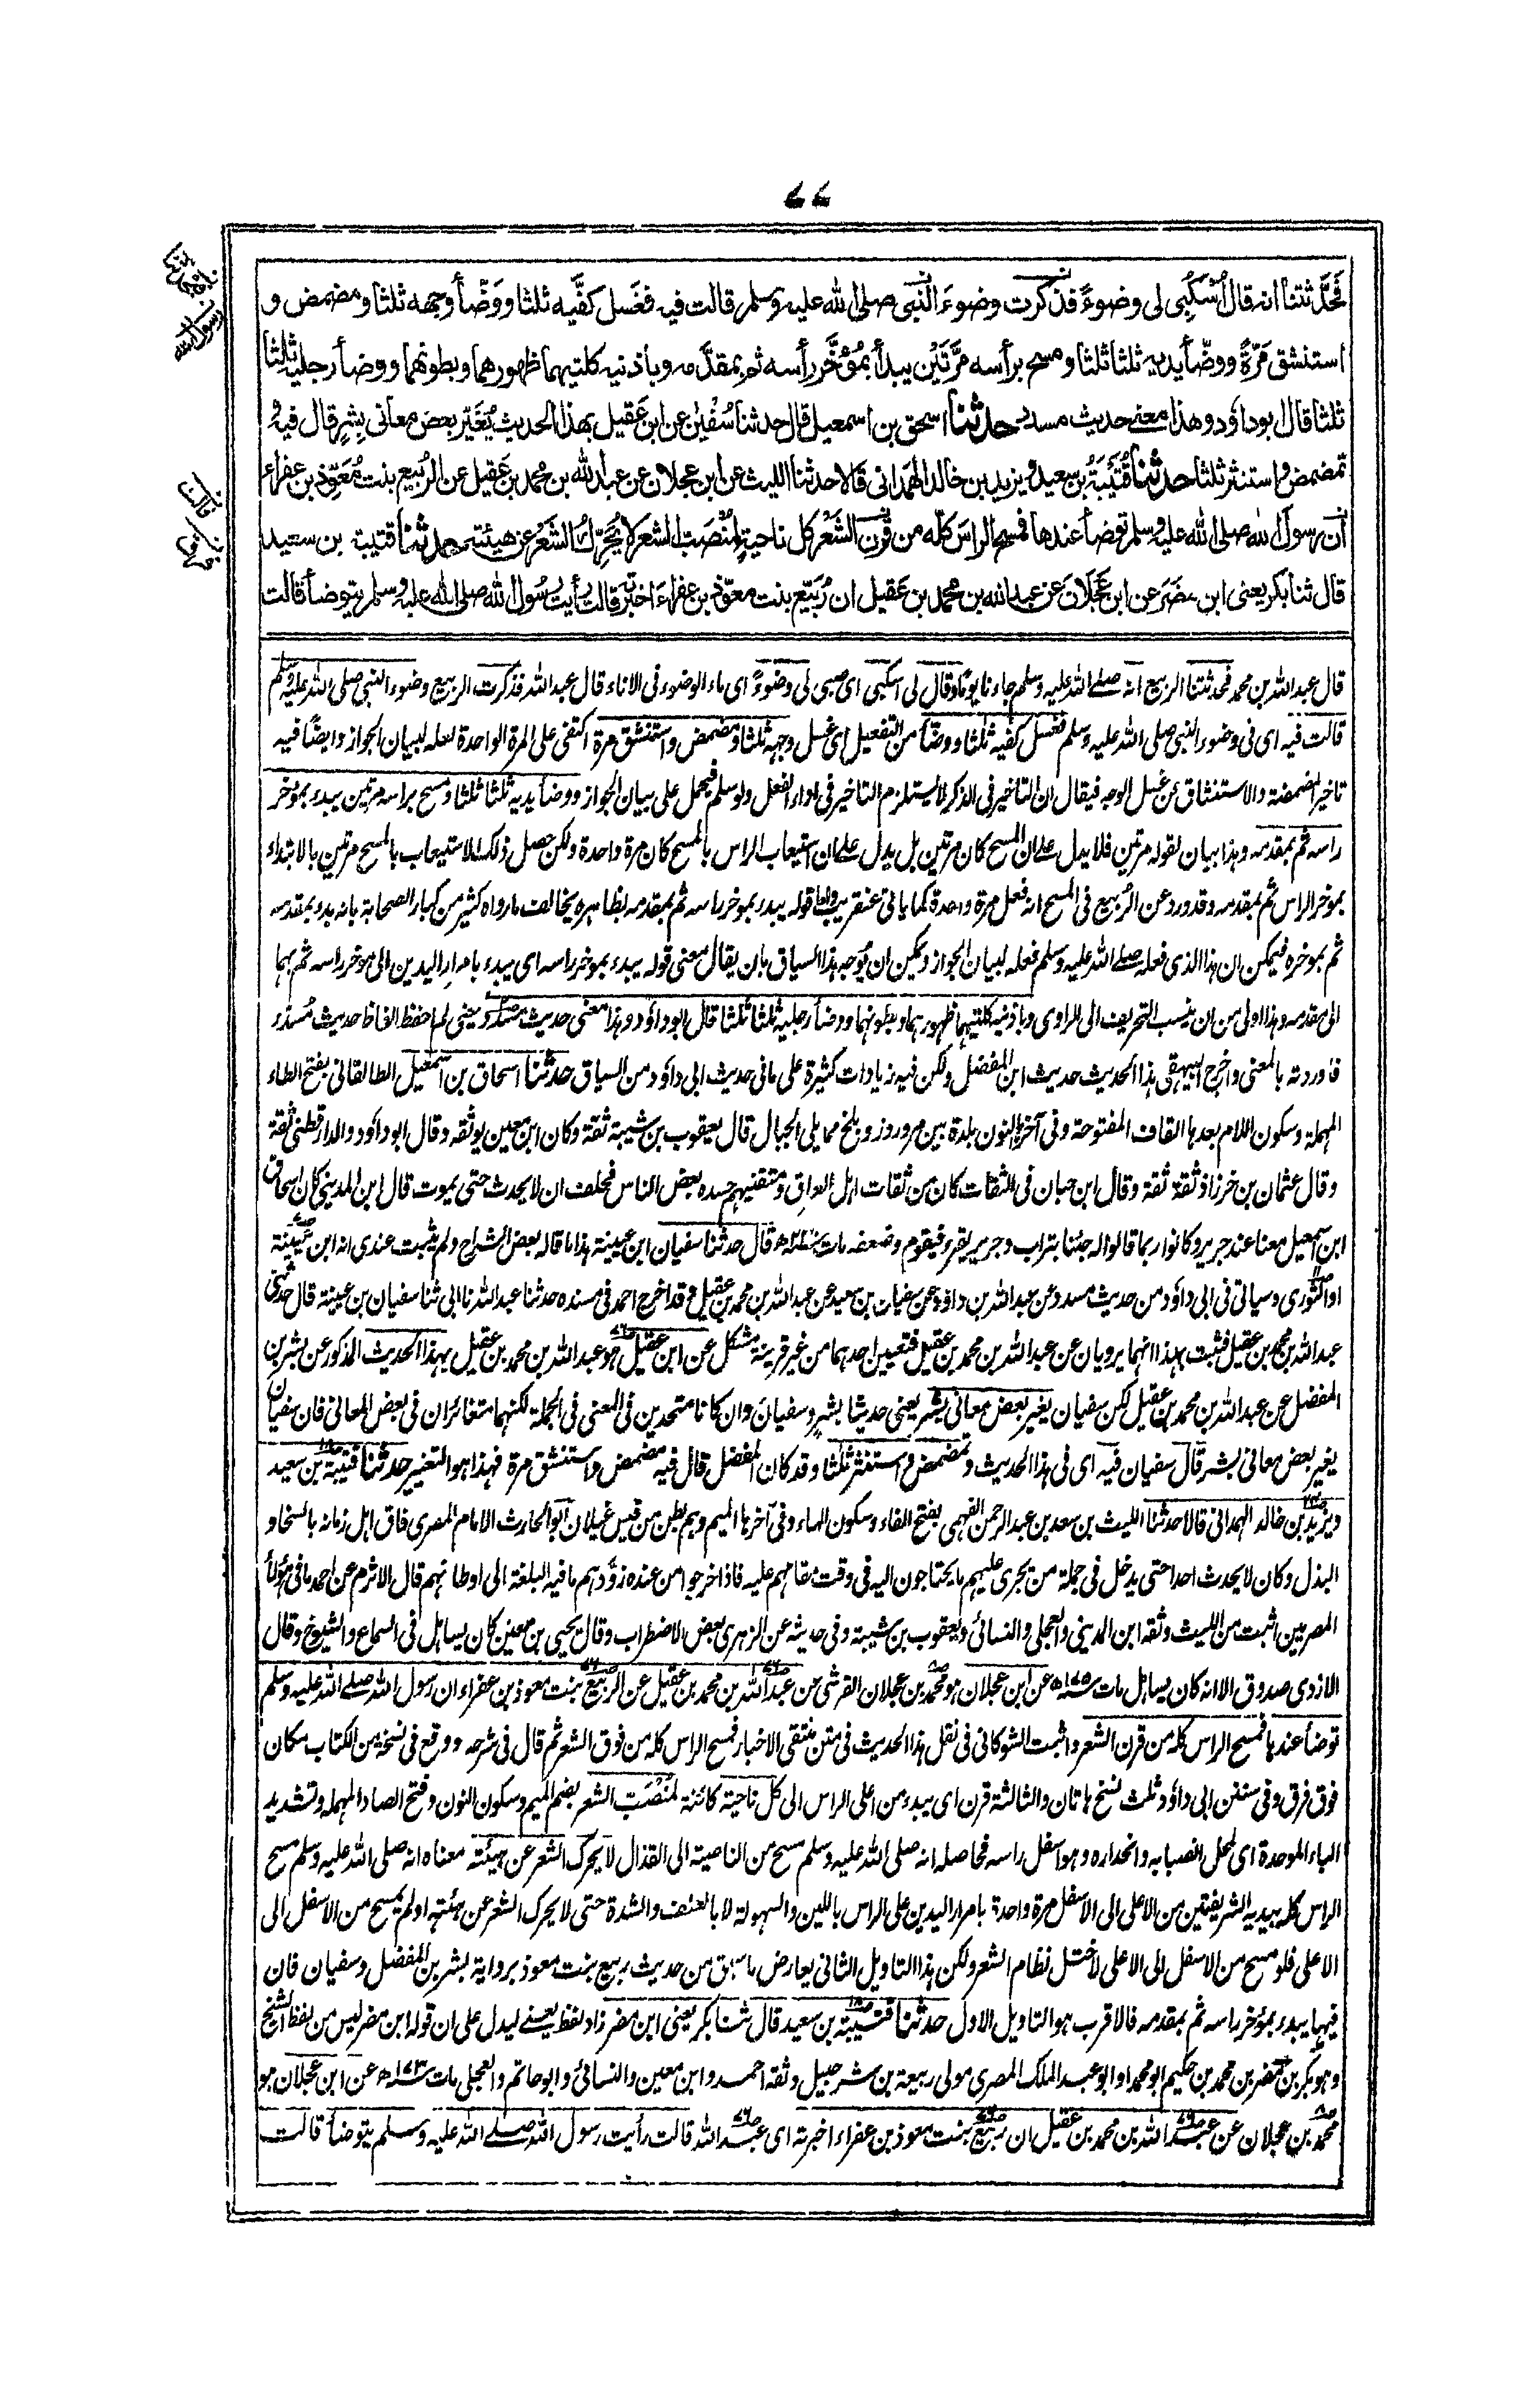 ٧٧
فحدَّثتنا انه قال أُسْكُبِى لى وضوءً فذكرت وضوءَ النبى صلى الله عليه وسلم قالت فيه فغسل كفَّيه ثلثا ووَضّأ وجهه ثلثا ومضمض و
استنشق مَرّةً ووضّأ يديه ثلثا ثلثا ومسح برأسه مرَّتَيْن يبدأ بمُؤَخَّر رأسه ثم بمقدَّمه وبأذنيه كلتيهما ظهورهما وبطونهما ووضأ رجليه ثلثا
ثلثا قال ابوداؤد وهذا معنى حديث مسدد حدثنا اسحق بن اسمعيل قال حدثنا سُفْيٰن عن ابن عَقيل بهذا الحديث يُغَيّر بعض معانى بِشرٍ قال فيه و
تمضمض واستنثر ثلثا حدثنا قُتَيْبَةُ بن سعيد ويزيد بن خالد الهَمْدانى قالا حدثنا الليث عن ابن عجلان عن عبد الله بن محمد بن عَقيل عن الرُبيع بنت مُعَوّذ بن عفراء
ان رسول الله صلى الله عليه وسلم توضأ عندها فمسح الراسَ كلّه من قَرْنِ الشَعْر كل ناحيةٍ لمُنْصَبّ الشعر لا يُحَرِّكُ الشَعْر عن هيئته حدثنا قتيبة بن سعيد
قال ثنا بكر يعنى ابن مضَرَ عن ابن عَجْلَانَ عن عبد الله بن محمد بن عَقيل ان رُبَيّع بنت معوّذ بن عفراءَ اخبرته قالت رأيت رسُول الله صلى الله عليه وسلم يتوضأ قالت
قال عبد الله بن محمد فحدثتنا الربيع انه صلى الله عليه وسلم جاءنا يوما وقال لى اسكبى اى صبى لى وضوءً اى ماء الوضوء فى الاناء قال عبد الله فذكرت الربيع وضوء النبى صلى الله عليه وسلم
قالت فيه اى فى وضوء النبى صلى الله عليه وسلم فغسل كفيه ثلثا ووضأ من التفعيل اى غسل وجهه ثلثا ومضمض واستنشق مرة اكتفى على المرة الواحدة لعله لبيان الجواز وايضا فيه
تاخير المضمضة والاستنشاق عن غسل الوجه فيقال ان التاخير فى الذكر لا يستلزم التاخير فى اداء الفعل ولو سلم فيحمل على بيان الجواز ووضأ يديه ثلثا ثلثا ومسح براسه مرتين يبدء بمؤخر
راسه ثم بمقدمه وهذا بيان لقوله مرتين فلا يدل على ان المسح كان مرتين بل يدل على ان استيعاب الراس بالمسح كان مرة واحدة ولكن حصل ذلك الاستيعاب بالمسح مرتين بالابتداء
بمؤخر الراس ثم بمقدمه وقد ورد عن الربيع فى المسح انه فعل مرة واحدة كما ياتى عنقريب واما قوله يبدء بمؤخر راسه ثم بمقدمه بظاهره يخالف ما رواه كثير من كبار الصحابة بانه بدء بمقدمه
ثم بمؤخره فيمكن ان هذا الذى فعله صلى الله عليه وسلم فعله لبيان الجواز ويمكن ان يوجه هذا السياق بان يقال معنى قوله يبدء بمؤخر راسه اى يبدء بامرار اليدين الى مؤخر راسه ثم بهما
الى مقدمه وهذا اولى من ان ينسب التحريف الى الراوى وباذنيه كلتيهما ظهورهما وبطونهما ووضأ رجليه ثلثا ثلثا قال ابو داؤد وهذا معنى حديث مسدد يعنى لم احفظ الفاظ حديث مسدد
فاوردته بالمعنى واخرج البيهقى هذا الحديث حديث ابن المفضل ولكن فيه زيادات كثيرة على ما فى حديث ابى داؤد من السياق حدثنا اسحاق بن اسمعيل الطالقانى بفتح الطاء
المهملة وسكون اللام بعدها القاف المفتوحة وفى آخرها النون بلدة بين مروروز وبلخ مما يلى الجبال قال يعقوب بن شيبة ثقة وكان ابن معين يوثقه وقال ابو داؤد والدارقطنى ثقة
وقال عثمان بن خرزاذ ثقة ثقة وقال ابن حبان فى الثقات كان من ثقات اهل العراق ومتقنيهم حسده بعض الناس فحلف ان لا يحدث حتى يموت قال ابن المدينى كان اسحاق
ابن اسمعيل معنا عند جرير وكانوا ربما قالوا له جئنا بتراب وجرير يقرء فيقوم وضعفه مات قال حدثنا سفيان ابن عيينة هذا ما قاله بعض الشراح ولم يثبت عندى انه ابن عيينة
او الثورى وسياتى فى ابى داؤد من حديث مسدد عن عبد الله بن داؤد عن سفيان بن سعيد عن عبد الله بن محمد بن عقيل وقد اخرج احمد فى مسنده حدثنا عبد الله نا ابى ثنا سفيان بن عيينة قال حدثنى
عبد الله بن محمد بن عقيل فثبت بهذا انهما يرويان عن عبد الله بن محمد بن عقيل فتعيين احدهما من غير قرينة مشكل عن ابن عقيل هو عبد الله بن محمد بن عقيل بهذا الحديث المذكور عن بشر بن
المفضل عن عبد الله بن محمد بن عقيل لكن سفيان يغير بعض معانى بشر يعنى حديثا بشر وسفيان وان كانا متحدين فى المعنى فى الجملة لكنهما متغائران فى بعض المعانى فان سفيان
يغير بعض معانى بشر قال سفيان فيه اى فى هذا الحديث وتمضمض واستنثر ثلثا وقد كان المفضل قال فيه مضمض واستنشق مرة فهذا هو التغيير حدثنا قتيبة بن سعيد
ويزيد بن خالد الهمدانى قالا حدثنا الليث بن سعد بن عبد الرحمن الفهمى بفتح الفاء وسكون الهاء وفى آخرها الميم وهم بطن من قيس غيلان ابو الحارث الامام المصرى فاق اهل زمانه بالسخاء و
البذل وكان لا يحدث احدا حتى يدخل فى جملة من يجرى عليهم ما يحتاجون اليه فى وقت مقامهم عليه فاذا خرجوا من عنده زوّدهم ما فيه البلغة الى اوطانهم قال الاثرم عن احمد ما فى هؤلاء
المصريين اثبت من الليث وثقه ابن المدينى والعجلى والنسائى ويعقوب بن شيبة وفى حديثه عن الزهرى بعض الاضطراب وقال يحيى بن معين كان يساهل فى السماع والشيوخ وقال
الازدى صدوق الا انه كان يساهل مات سنة ١٧٥ھ عن ابن عجلان هو محمد بن عجلان القرشى عن عبد الله بن محمد بن عقيل عن الربيع بنت معوذ بن عفراء ان رسول الله صلى الله عليه وسلم
توضأ عندها فمسح الراس كله من قرن الشعر واثبت الشوكانى فى نقل هذا الحديث فى متن منتقى الاخبار فمسح الراس كله من فوق الشعر ثم قال فى شرحه ووقع فى نسخة من الكتاب مكان
فوق فرق وفى سنن ابى داؤد ثلث نسخ هاتان والثالثة قرن اى يبدء من اعلى الراس الى كل ناحية كائنة لمُنْصَبّ الشعر بضم الميم وسكون النون وفتح الصاد المهملة وتشديد
الباء الموحدة اى لمحل انصبابه وانحداره وهو اسفل راسه فحاصله انه صلى الله عليه وسلم مسح من الناصية الى القذال لا يحرك الشعر عن هيئته معناه انه صلى الله عليه وسلم مسح
الراس كله بيديه الشريفتين من الاعلى الى الاسفل مرة واحدة بامرار اليدين على الراس باللين والسهولة لا بالعنف والشدة حتى لا يحرك الشعر عن هيئته او لم يمسح من الاسفل الى
الاعلى فلو مسح من الاسفل الى الاعلى لاختل نظام الشعر ولكن هذا التاويل الثانى يعارض ما سبق من حديث ربيع بنت معوذ برواية بشر بن المفضل وسفيان فان
فيها يبدء بمؤخر راسه ثم بمقدمه فالاقرب هو التاويل الاول حدثنا قتيبة بن سعيد قال ثنا بكر يعنى ابن مضر زاد لفظ يعنى ليدل على ان قوله ابن مضر ليس من لفظ الشيخ
وهو بكر بن مضر بن محمد بن حكيم ابو محمد او ابو عبد الملك المصرى مولى ربيعة بن شرحبيل وثقه احمد وابن معين والنسائى وابو حاتم والعجلى مات سنة ١٧٣ھ عن ابن عجلان هو
محمد بن عجلان عن عبد الله بن محمد بن عقيل ان ربيع بنت معوذ بن عفراء اخبرته اى عبد الله قالت رأيت رسول الله صلى الله عليه وسلم يتوضأ قالت